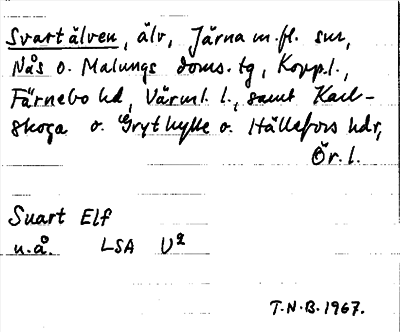 Svartälven, älv, Järna m.fl. snr,
Nås o. Malungs doms. tg, Koppl.,
Färnebo hd, Värml. l., samt Karl-
skoga o. Grythytte o. Hällefors hdr,
Ör. l.
Suart Elf
u.å. LSA U²
T.N.B. 1967.